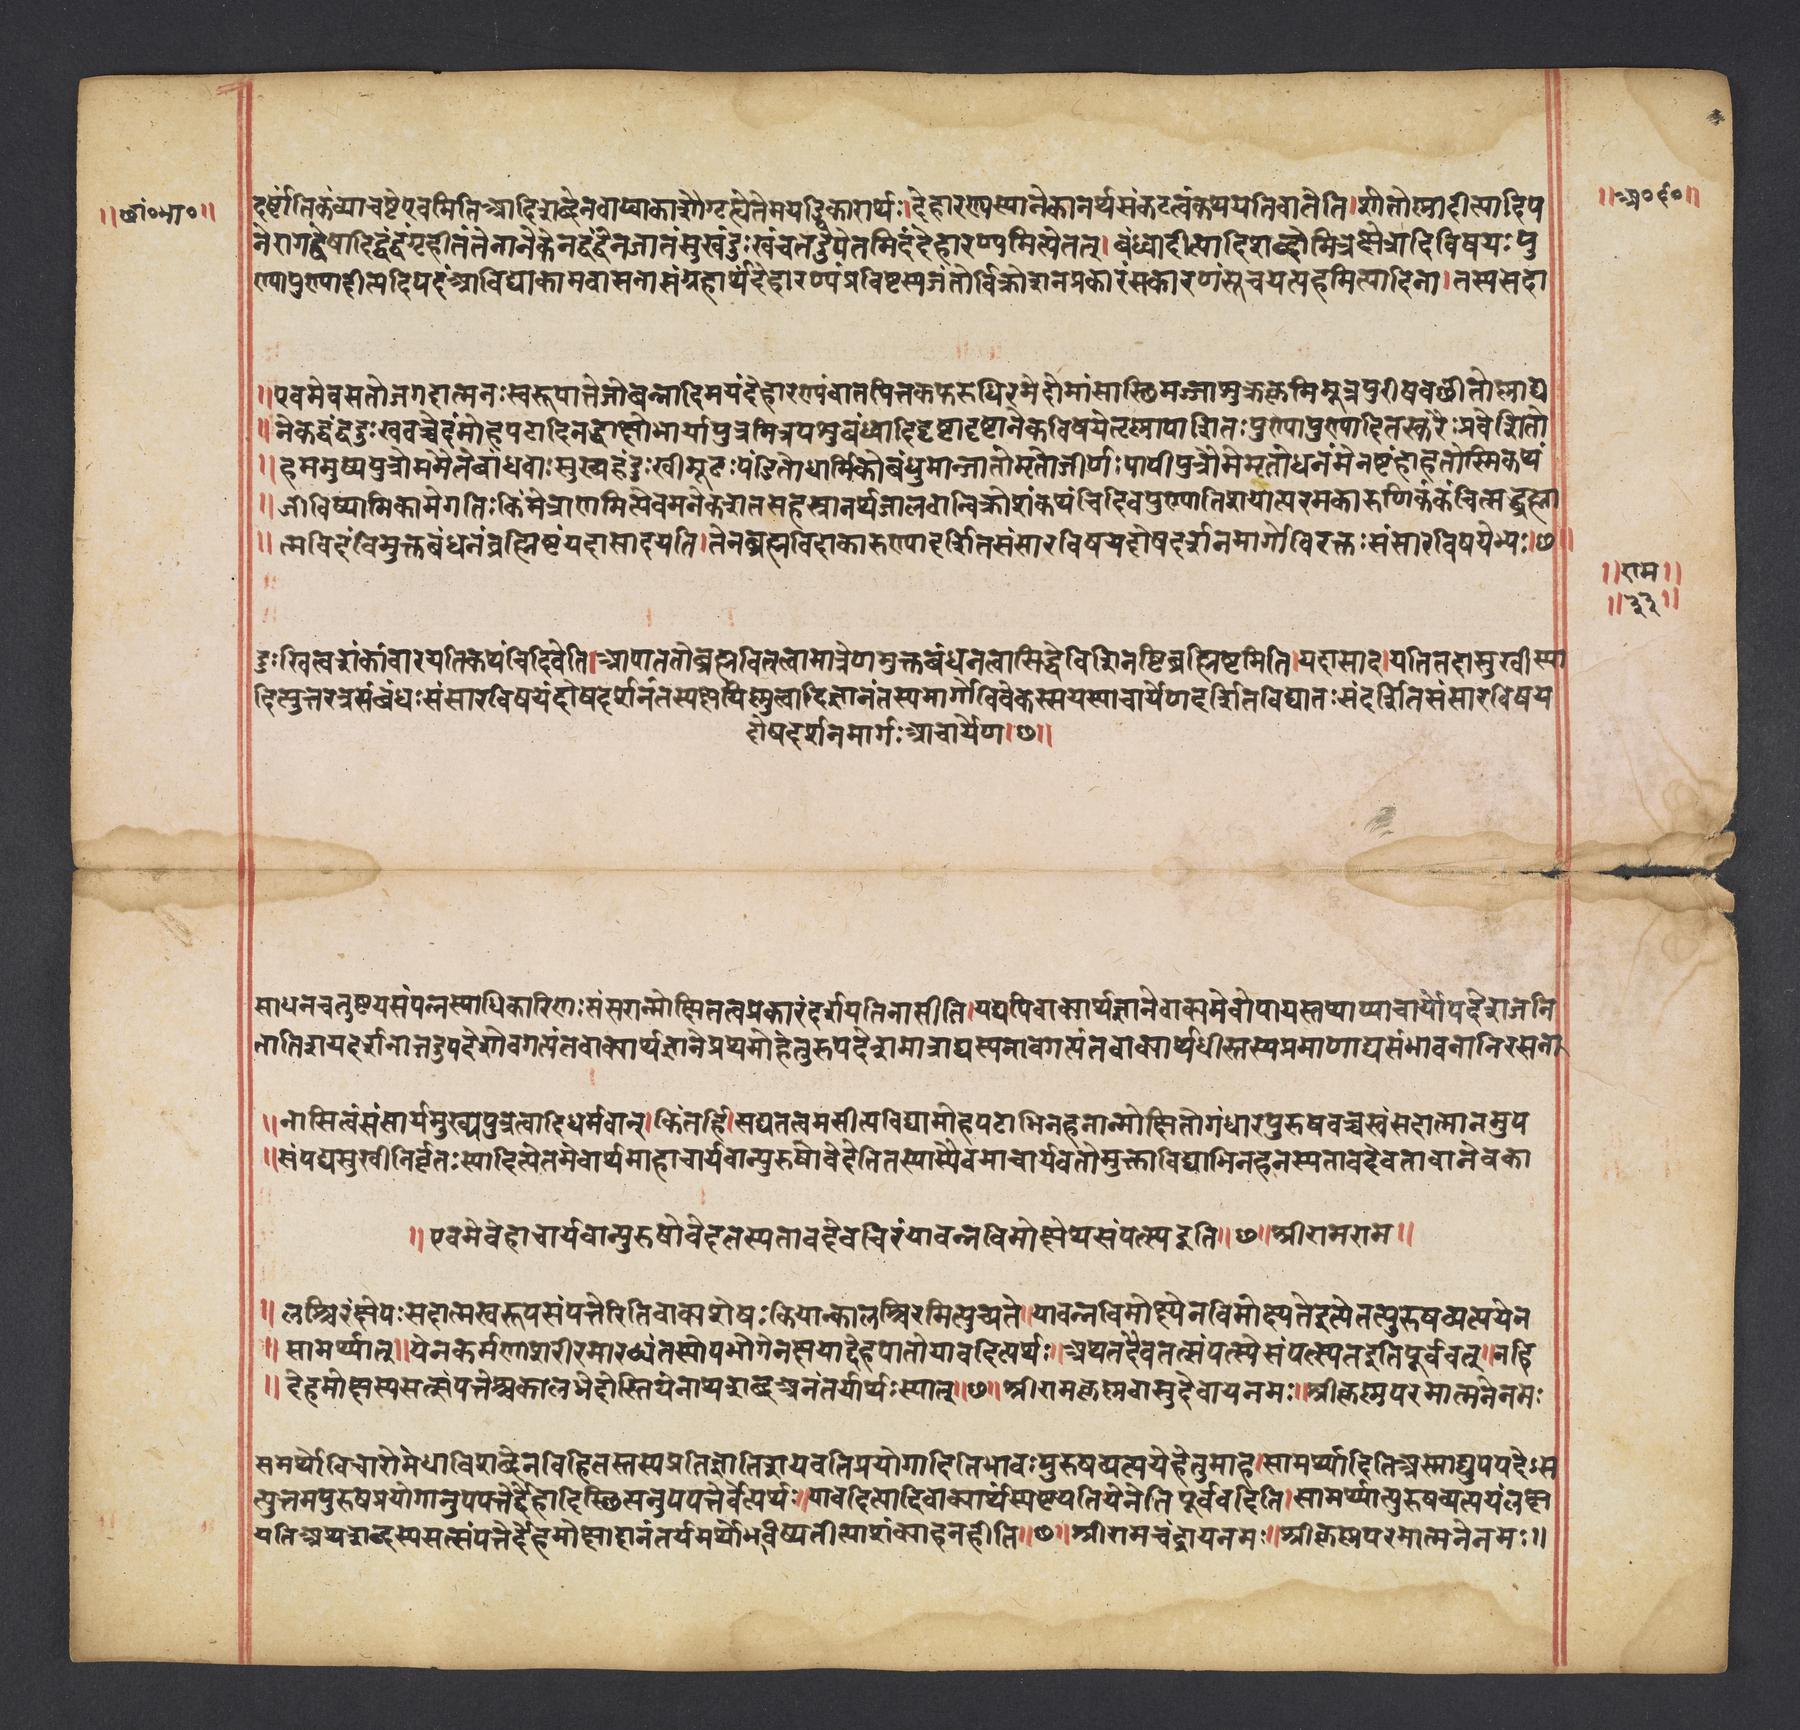 ॥छां०भा०॥
॥अ०६०॥
दार्ष्टांतिकंव्याचष्टेएवमितिआदिशब्देनवाय्वाकाशौगृह्येतेमयड्विकारार्थः।देहारण्यस्यानेकानर्थसंकटत्वंकथयतिवातेति।शीतोष्णादीत्यादिप
नेरागद्वेषादिद्वंद्वंगृहीतंतेनानेकेनद्वंद्वेनजातंसुखंदुःखंचतदुपेतमिदंदेहारण्यमित्येतत्।बंध्वादीत्यादिशब्दोमित्रक्षेत्रादिविषयःपु
ण्यापुण्यादीत्यदिपदंआविद्याकामवासनासंग्रहार्थंदेहारण्यंप्रविष्टस्यजंतोर्विक्रोशनप्रकारंसकारणंसूचयत्यहमित्यादिना।तस्यसदा
॥एवमेवसतोजगदात्मनःस्वरूपात्तेजोबन्नादिमयंदेहारण्यंवातपित्तकफरुधिरमेदोमांसास्थिमज्जाशुक्रकृमिमूत्रपुरीषवच्छीतोष्णाद्य
॥नेकद्वंद्वदुःखवच्चेदंमोहपटाभिनद्धाक्षोभार्यापुत्रमित्रपशुबंध्वादिदृष्टादृष्टानेकविषयेतृष्णापाशितःपुण्यापुण्यादितस्करैःप्रवेशितो
॥हममुष्यपुत्रोममैतेबांधवाःसुख्यहंदुःखीमूढःपंडितोधार्मिकोबंधुमान्जातोमृतोजीर्णःपापीपुत्रोमेमृतोधनंमेनष्टंहाहतोस्मिकथं
॥जीविष्यामिकामेगतिःकिंमेत्राणमित्येवमनेकशतसहस्रानर्थजालवान्विक्रोशंकथंचिदेवपुण्यातिशयात्परमकारुणिकंकंचित्सद्ब्रह्मा
॥त्मविदंविमुक्तबंधनंब्रह्मिष्टंयदासादयति।तेनब्रह्मविदाकारुण्याद्दर्शितसंसारविषयदोषदर्शनमार्गोविरक्तःसंसारविषयेभ्यः।७॥
॥राम॥
॥३३॥
दुःखित्वशंकांवारयतिकथंचिदिवेति।आपाततोब्रह्मवित्तत्वामात्रेणमुक्तबंधनत्वासिद्धेर्विशिनष्टिब्रह्मिष्टमिति।यदासाद।यतितदासुखीस्या
दित्युत्तरत्रसंबंधःसंसारविषयंदोषदर्शनंतस्यक्षयिष्णुत्वादिज्ञानंतस्यमार्गोविवेकस्मयस्याचार्येणदर्शितिविद्यातःसंदर्शितसंसारविषय
दोषदर्शनमार्गःआचार्येण।७॥
साधनचतुष्टयसंपन्नस्याधिकारिणःसंसरान्मोक्षितत्वप्रकारंदर्शयतिनासीति।यद्यपिवाक्यार्थज्ञानेवाक्यमेवोपायस्तथाप्याचार्योपदेशजनि
तातिशयदर्शनात्तदुपदेशोवगत्यंतवाक्यार्थज्ञानेप्रथमोहेतुरुपदेशमात्राद्यस्यनावगत्यंतवाक्यार्थधीस्तस्यप्रमाणाद्यसंभावनानिरसनो
॥नासित्वंसंसार्यमुष्यपुत्रत्वादिधर्मवान्।किंतर्हि।सद्यतत्वमसीत्यविद्यामोहपटाभिनहनान्मोक्षितोगंधारपुरुषवच्चस्वंसदात्मानमुप
॥संपद्यसुखीनिर्वृतःस्यादित्येतमेवार्थमाहाचार्यवान्पुरुषोवेदेतितस्यास्यैवमाचार्यवतोमुक्ताविद्याभिनहनस्यतावदेवतावानेवका
॥एवमेवेहाचार्यवान्पुरुषोवेदतस्यतावदेवचिरंयावन्नविमोक्षेथसंपत्स्यइति॥७॥श्रीरामराम॥
॥लश्चिरंक्षेपःसदात्मस्वरूपसंपत्तेरितिवाक्यशेषःकियान्कालश्चिरमित्युच्यते॥यावन्नविमोक्ष्येनविमोक्ष्यतेइत्येतत्पुरुषव्यत्ययेन
॥सामर्थ्यात्॥येनकर्मणाशरीरमारब्धंतस्योपभोगेनक्षयाद्देहपातोयावदित्यर्थः॥अथतदैवतत्संपत्स्येसंपत्स्यतइतिपूर्ववत्॥नहि
॥देहमोक्षस्यसत्संपत्तेश्चकालभेदोस्तियेनाथशब्दआनंतर्यार्थःस्यात्॥७॥श्रीरामकृष्णवासुदेवायनमः॥श्रीकृष्णपरमात्मनेनमः
समर्थोविचारोमेधाविशब्देनविहितस्तस्यप्रतिज्ञातिशयवतिप्रयोगादितिभावःपुरुषव्यत्ययेहेतुमाह।सामर्थ्यादितिअस्माद्युपपदेःस
त्युत्तमपुरुषप्रयोगानुपपत्तेर्देहादिस्थित्यनुपपत्तेर्वेत्यर्थः॥यावदित्यादिवाक्यार्थंस्पष्टयतियेनेतिपूर्ववदिति।सामर्थ्यात्पुरुषव्यत्ययंलक्ष
यतिअथशब्दस्यसत्संपत्तेर्देहमोक्षादानंतर्यमर्थोभविष्यतीत्याशंक्याहनहीति॥७॥श्रीरामचंद्रायनमः॥श्रीकृष्णपरमात्मनेनमः॥